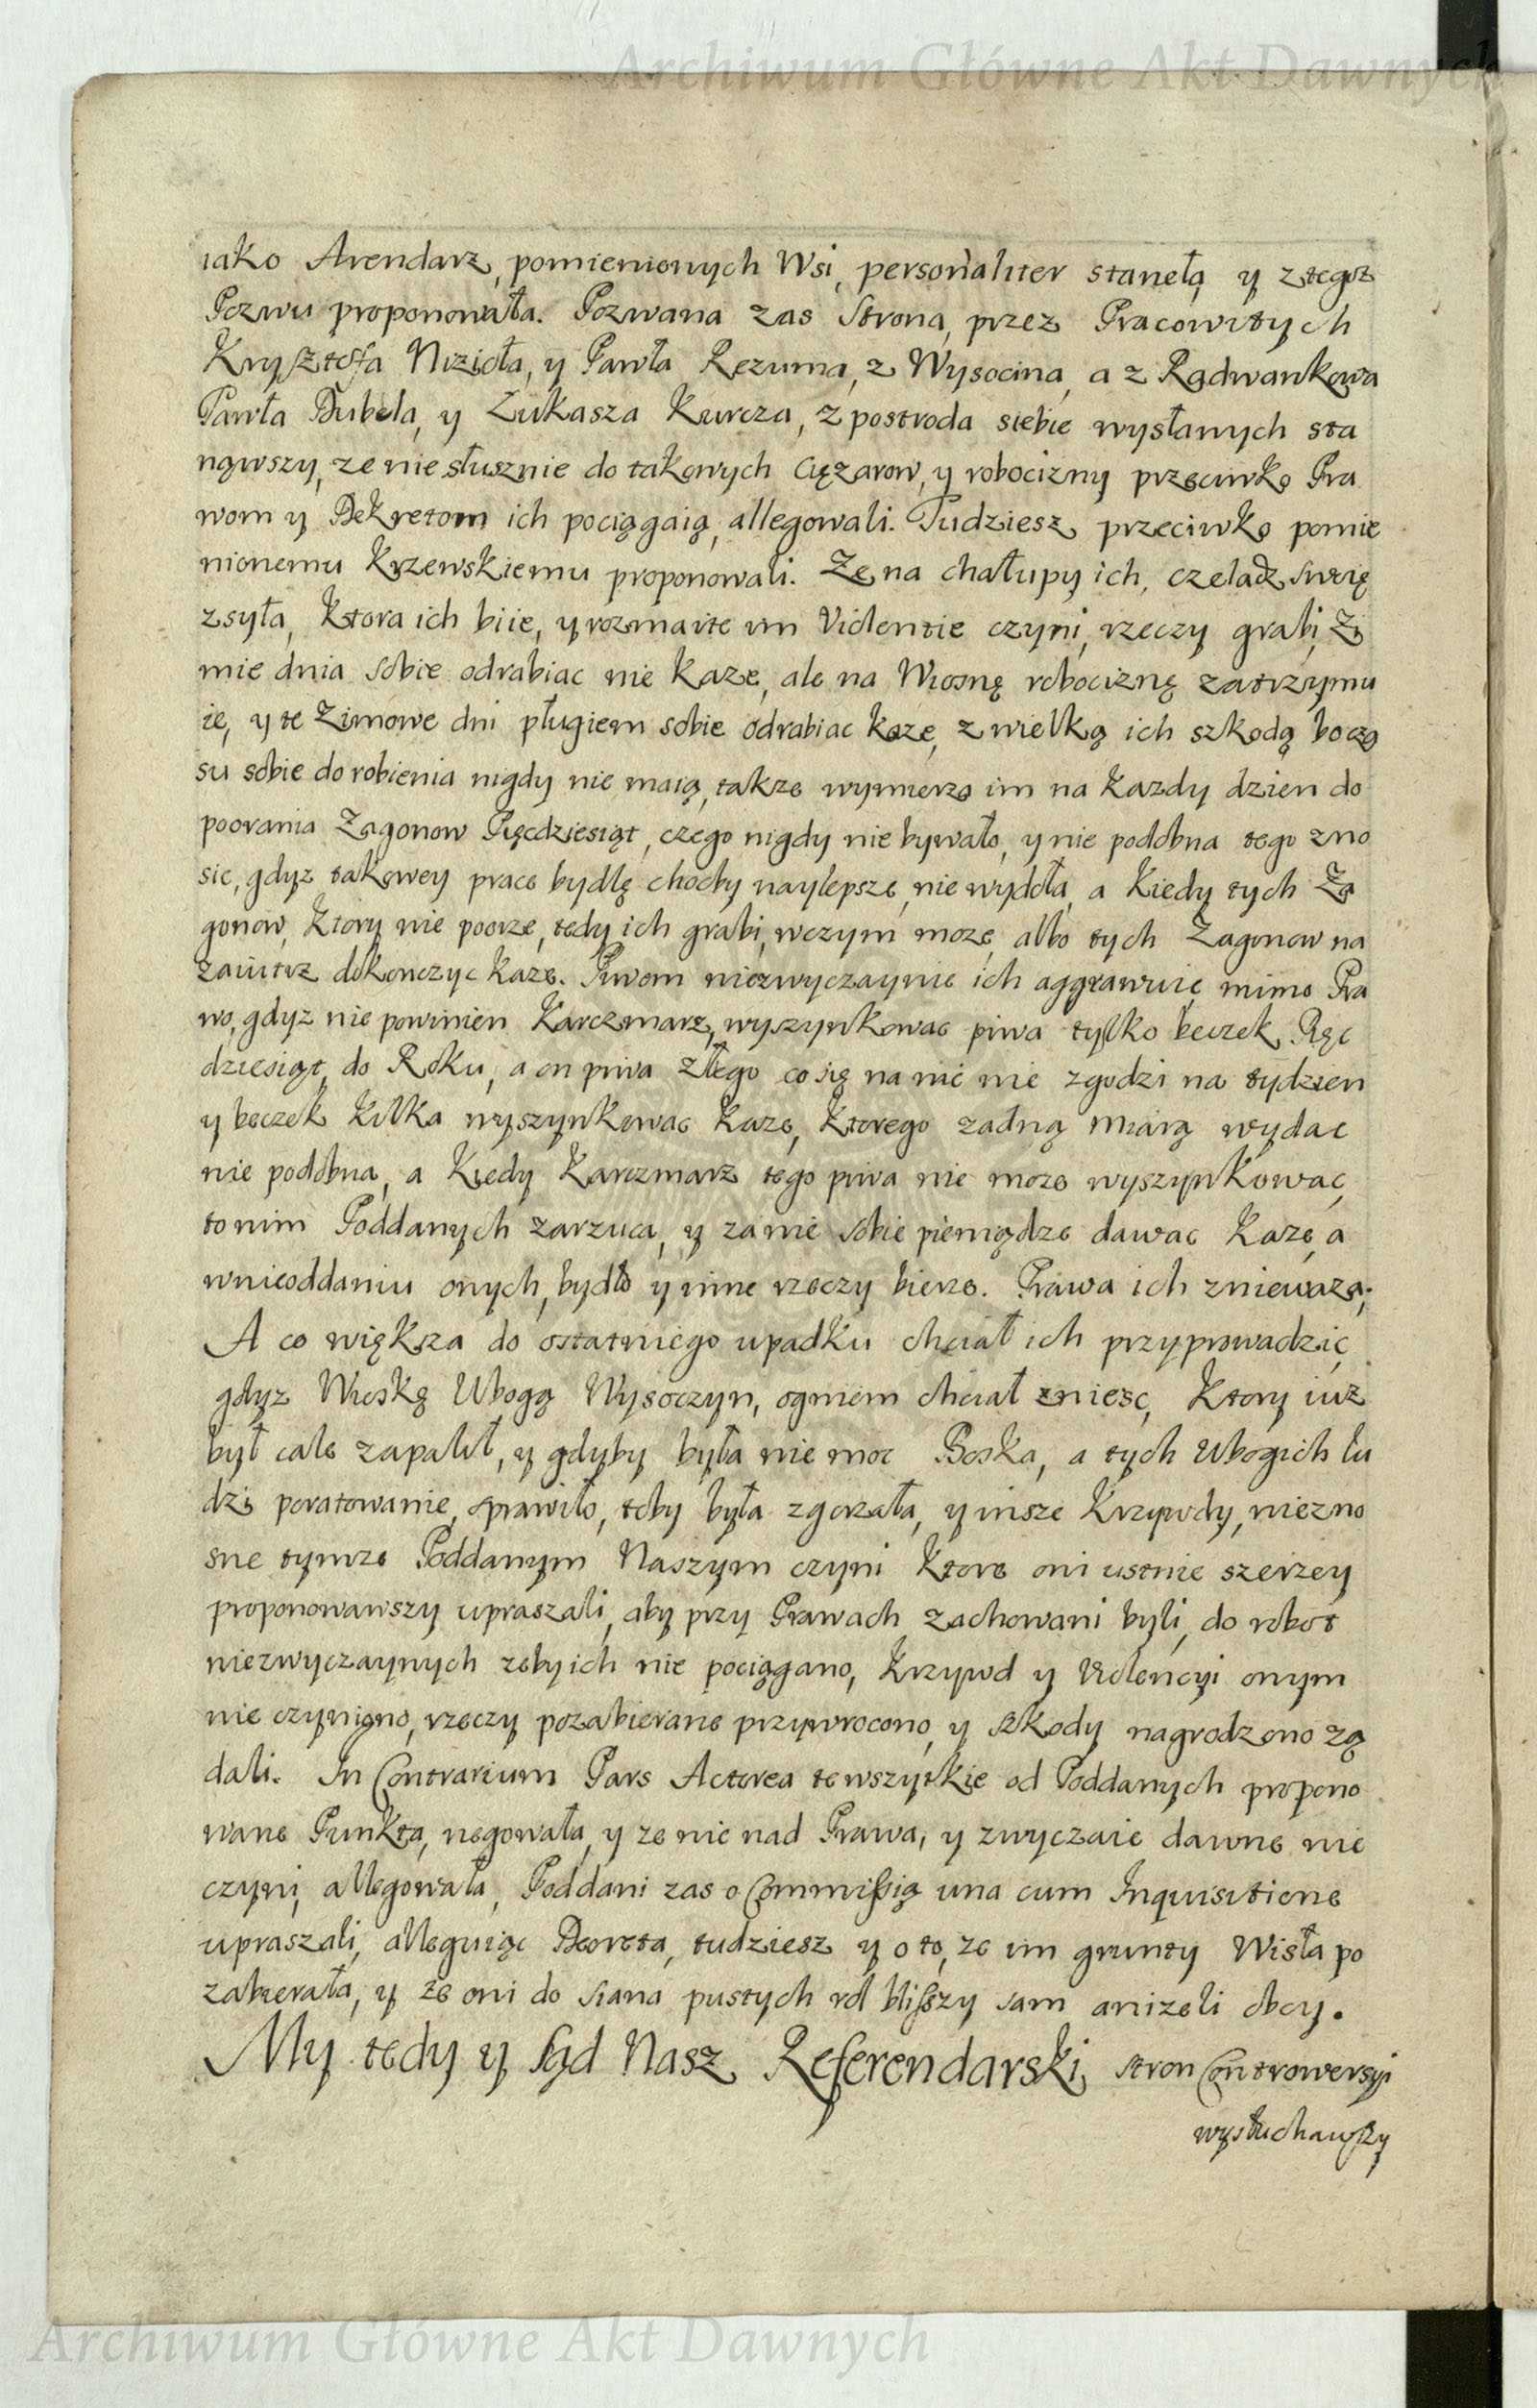 Archiwum Główne Akt Dawnych
iako Arendarz, pomienionych Wsi, personaliter stanęła y z tegoż
Pozwu proponowała. Pozwana zas Strona, przez Pracowitych
Krysztofa Nizioła, y Pawła Rezuma, z Wysocina, a z Radwankowa
Pawła Dubela, y Łukasza Kurcza, z postroda siebie wysłanych sta
nąwszy, ze niesłusznie do takowych Cięzarow, y robocizny przeciwko Pra
wom y Dekretom ich pociągaią, allegowali. Tudziesz przeciwko pomie
nionemu Krzewskiemu proponowali. Ze na chałupy ich, czeladz swoię
zsyła, Ktora ich biie, y rozmaite im Violentie czyni, rzeczy grabi, Zi
mie dnia sobie odrabiac nie Kaze, ale na Wiosnę robociznę zatrzymu
ie, y te Zimowe dni pługiem sobie odrabiac kaze, z wielką ich szkodą bo cza
su sobie do robienia nigdy nie maią, takze wymierza im na Kazdy dzien do
poorania Zagonow Pięcdziesiąt, czego nigdy nie bywało, y nie podobna tego zno
sic, gdyz takowey prace bydlę chocby naylepsze, nie wydoła, a Kiedy tych Za
gonow, Ktory nie poorze, tedy ich grabi, wczym moze, albo tych Zagonow na
zaiutrz dokonczyc kaze. Piwem niezwyczaynie ich aggrawuie, mimo Pra
wo, gdyz nie powinien Karczmarz, wyszynkowac piwa tylko beczek Pięc
dziesiąt, do Roku, a on piwa złego co się na nic nie zgodzi na tydzien
y beczek Kilka wyszynkowac Kaze, Ktorego zadną miarą wydac
nie podobna, a Kiedy Karczmarz tego piwa nie moze wyszynkowac,
to nim Poddanych zarzuca, y za nie sobie pieniądze dawac Kaze, a
wnieoddaniu onych, bydło y inne rzeczy bierze. Prawa ich zniewaza;
A co większa do ostatniego upadku chciał ich przyprowadzic,
gdyz Wioskę Ubogą Wysoczyn, ogniem chciał zniesc, Ktory iuz
był cale zapalił, y gdyby była nie moc Boska, a tych Ubogich lu
dzi poratowanie, sprawiło, toby była zgorzała, y insze Krzywdy, niezno
sne tymze Poddanym Naszym czyni Ktore oni ustnie szerzey
proponowawszy upraszali, aby przy Prawach zachowani byli, do robot
niezwyczaynych zeby ich nie pociągano, Krzywd y Violencyi onym
nie czyniono, rzeczy pozabierane przywrocono, y szkody nagrodzono zą
dali. In Contrarium Pars Actorea te wszytkie od Poddanych propono
wane Punkta, negowała, y ze nic nad Prawa, y zwyczaie dawne nie
czyni, allegowała, Poddani zas o Commissią una cum Inquisitione
upraszali, alleguiąc Decreta, tudziesz y o to, ze im grunty Wisła po
zabierała, y ze oni do siana pustych rol blisszy sam anizeli obcy.
My tedy y Sąd Nasz Referendarski, stron Controwersyi
wysłuchawszy
Archiwum Główne Akt Dawnych